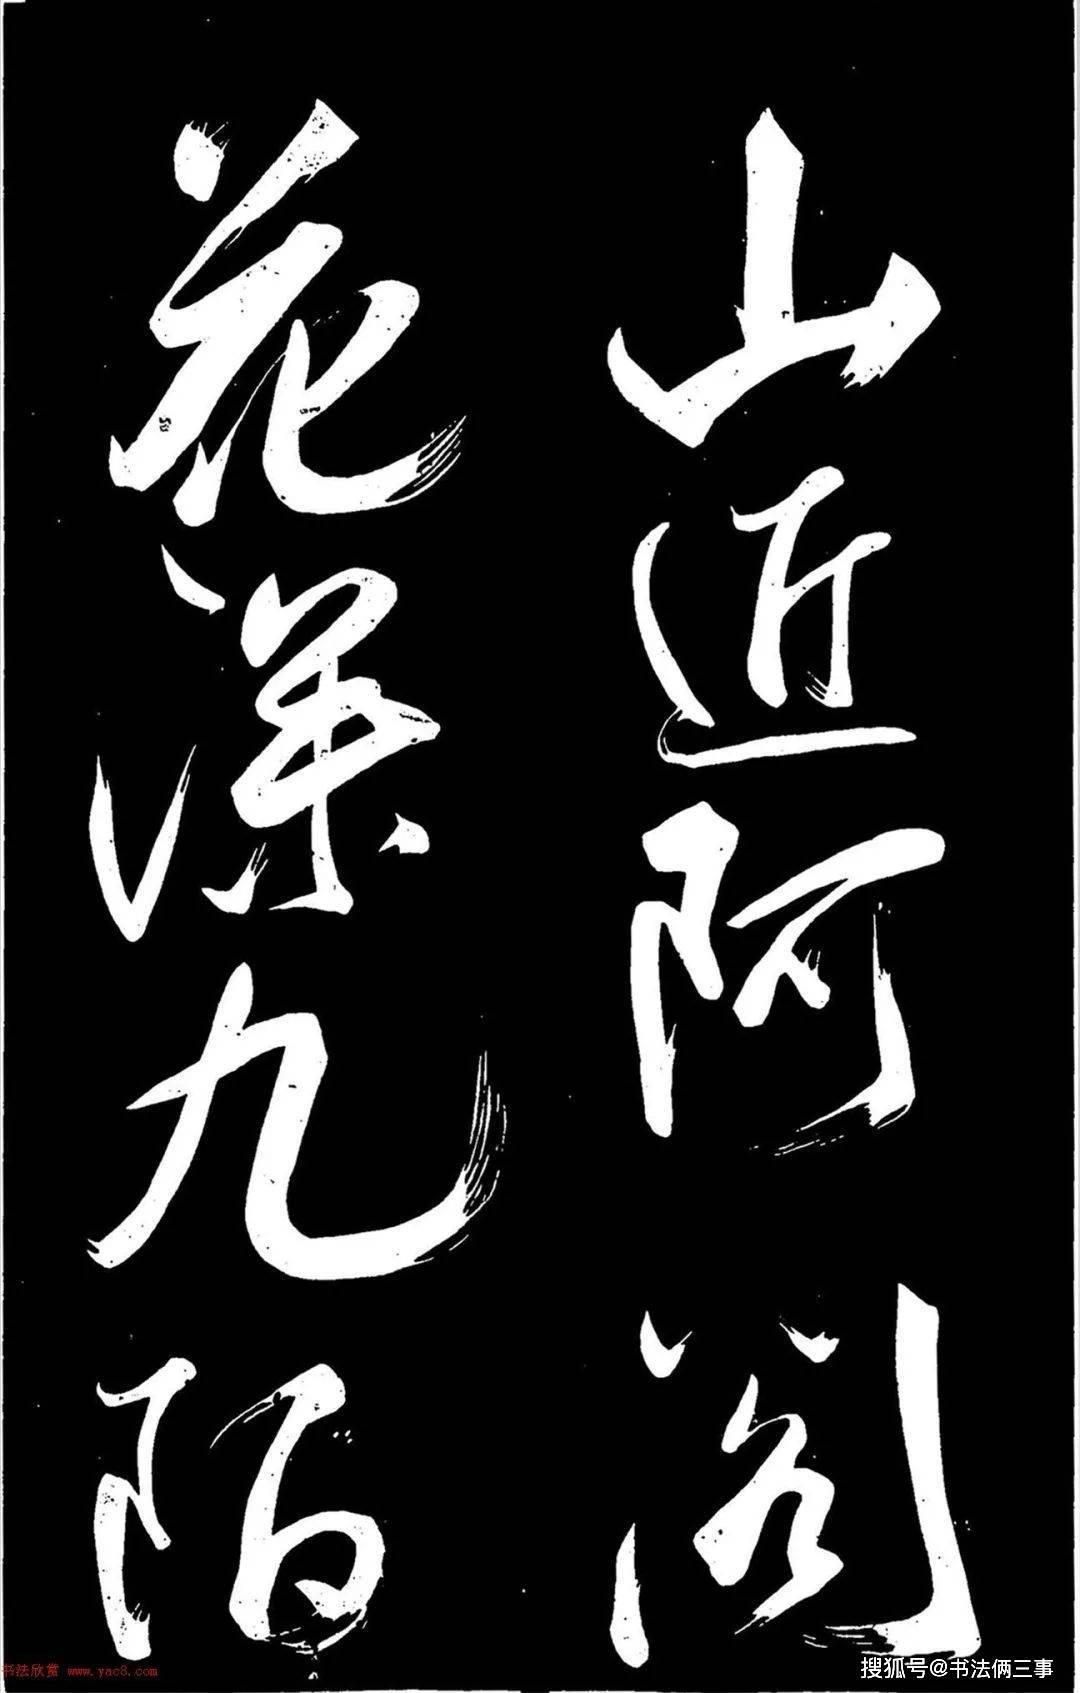 山近阿阁
花深九陌
书法欣赏 www.yac8.com
搜狐号@书法俩三事